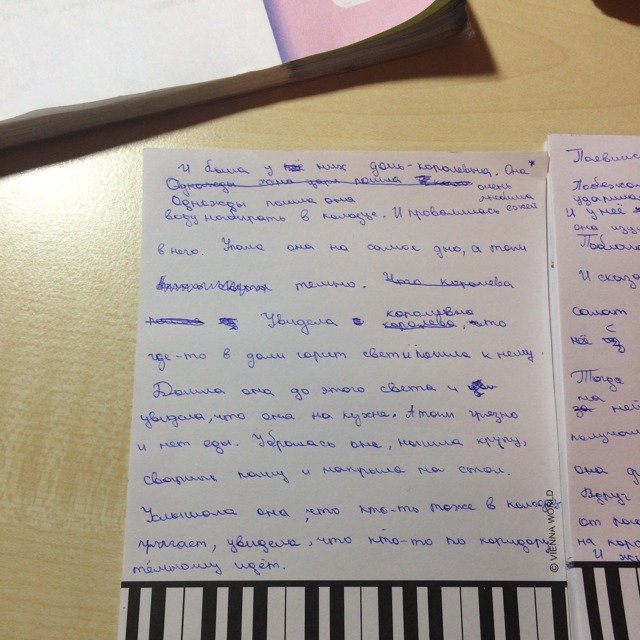 И была у них дочь-королевна. Она*
Однажды жена царя пошла очень
Однажды пошла она любила
воду набирать в колодце. И провалилась ежей
в него. Упала она на самое дно, а там
темно. Что королева
пошла Увидела королевна
королева, что
где-то в дали горит свет и пошла к нему.
Дошла она до этого света и
увидела, что она на кухне. А там грязно
и нет еды. Убралась она, нашла крупу,
сварила кашу и накрыла на стол.
Услышала она, что кто-то тоже в колодец
прыгает, увидела, что кто-то по коридору
тёмному идёт.
© VIENNA WORLD
Побежа
ударила
И у неё
она
И сказа
салат
с
неё
Тогда
на
за ней
получ
она д
Вдруг
от
на кор
И